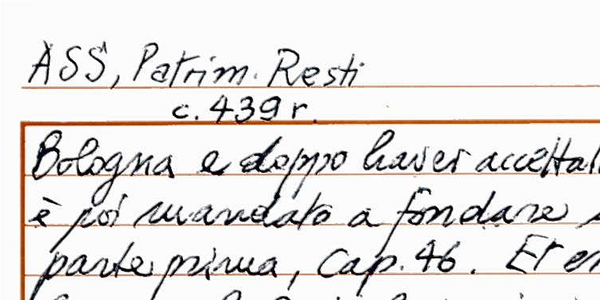 ASS, Patrim. Resti
c. 439 r.
Bologna e doppo haver accettat
è poi mandato a fondare
parte prima, Cap. 46. Et